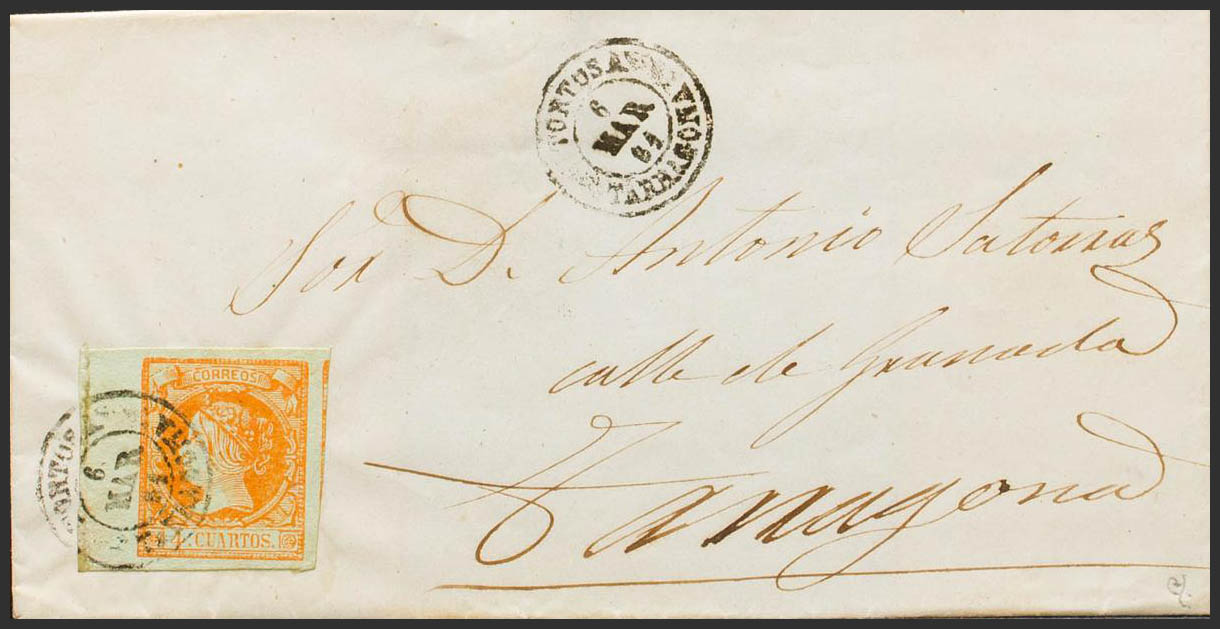 TORTOSA
6
MAR
61
TARRAGONA
Sor. D. Antonio Satorras
calle de Granada
Tarragona
CORREOS
4 CUARTOS.
TORTOSA
6
MAR
61
TARRAGONA